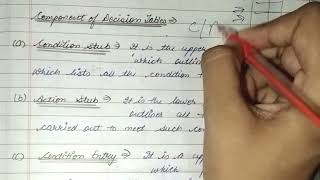 Component of Decision Tables →
C/
(a) Condition Stub → It is the upper
which outlin
which lists all the condition t
(b) Action Stub → It is the lower
outlines all t
carried out to meet such con
(c) Condition Entry → It is a upp
which p